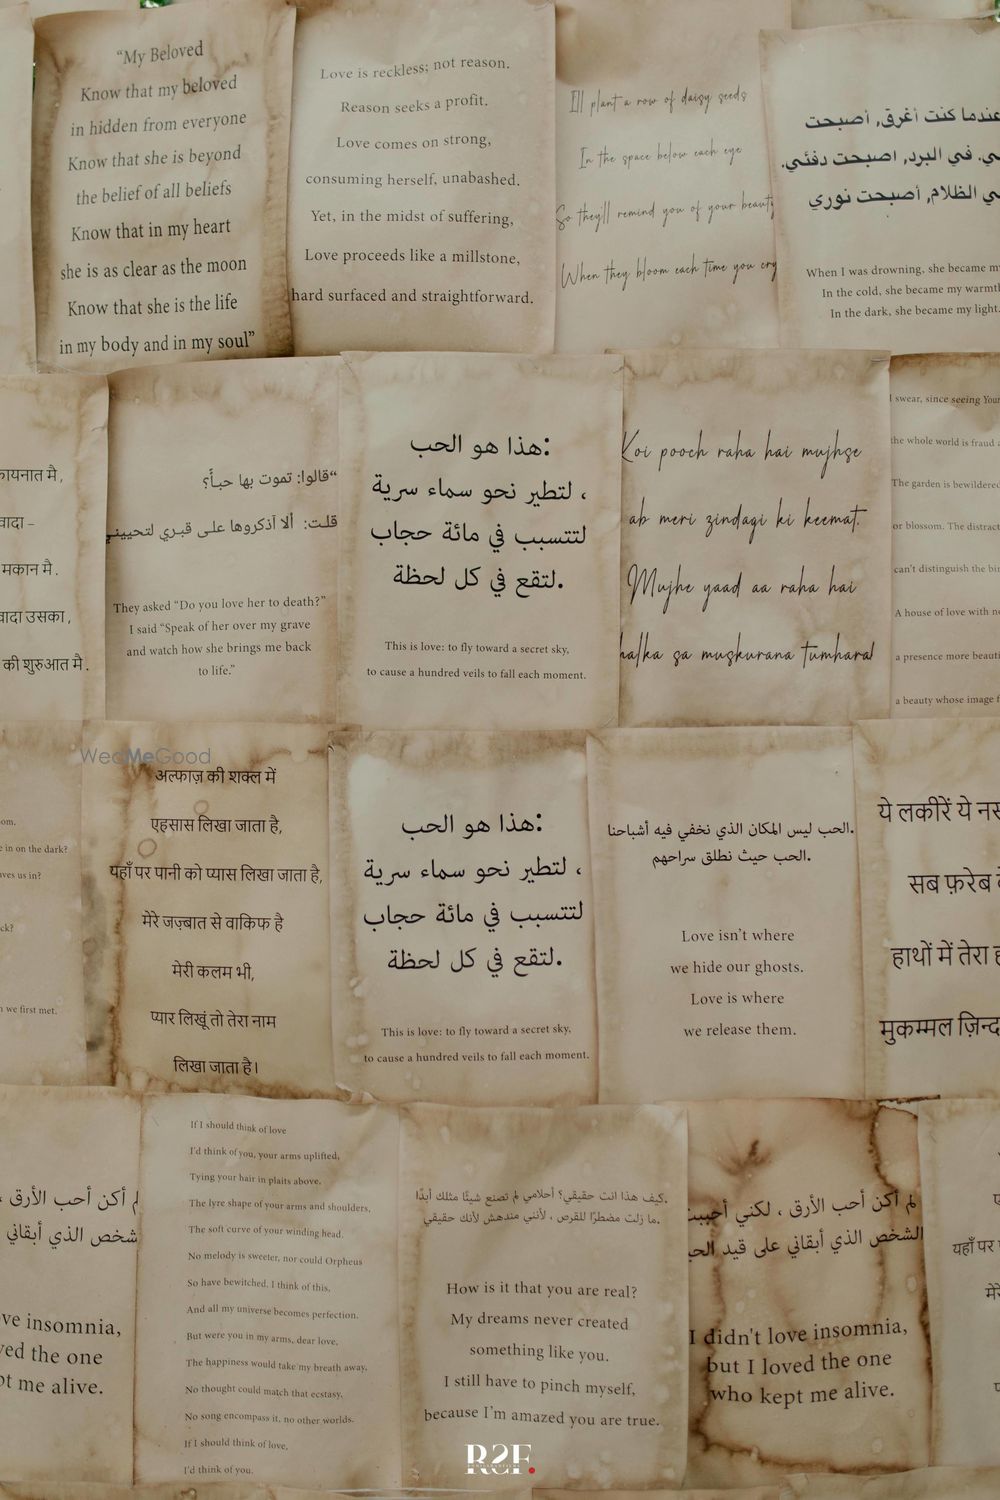 “My Beloved
Know that my beloved
in hidden from everyone
Know that she is beyond
the belief of all beliefs
Know that in my heart
she is as clear as the moon
Know that she is the life
in my body and in my soul”
Love is reckless; not reason.
Reason seeks a profit.
Love comes on strong,
consuming herself, unabashed.
Yet, in the midst of suffering,
Love proceeds like a millstone,
hard surfaced and straightforward.
I'll plant a row of daisy seeds
In the space below each eye
So they'll remind you of your beauty
When they bloom each time you cry
عندما كنت أغرق, أصبحت
في البرد, اصبحت دفئي.
الظلام, أصبحت نوري
When I was drowning, she became my
In the cold, she became my warmth
In the dark, she became my light.
कायनात मै,
वादा –
मकान मै.
वादा उसका,
की शुरुआत मै.
“قالوا: تموت بها حبـأً؟
قلت: ألا أذكروها على قبري لتحييني
They asked “Do you love her to death?”
I said “Speak of her over my grave
and watch how she brings me back
to life.”
هذا هو الحب:
، لتطير نحو سماء سرية
لتتسبب في مائة حجاب
لتقع في كل لحظة.
This is love: to fly toward a secret sky,
to cause a hundred veils to fall each moment.
Koi pooch raha hai mujhse
ab meri zindagi ki keemat.
Mujhe yaad aa raha hai
halka sa muskurana tumhara!
I swear, since seeing Your
the whole world is fraud
The garden is bewildered
or blossom. The distract
can't distinguish the bir
A house of love with no
a presence more beauti
a beauty whose image f
om.
e in on the dark?
ves us in?
ck?
n we first met.
WedMeGood
अल्फाज़ की शक्ल में
एहसास लिखा जाता है,
यहाँ पर पानी को प्यास लिखा जाता है,
मेरे जज़्बात से वाकिफ है
मेरी कलम भी,
प्यार लिखूं तो तेरा नाम
लिखा जाता है।
هذا هو الحب:
، لتطير نحو سماء سرية
لتتسبب في مائة حجاب
لتقع في كل لحظة.
This is love: to fly toward a secret sky,
to cause a hundred veils to fall each moment.
الحب ليس المكان الذي نخفي فيه أشباحنا.
الحب حيث نطلق سراحهم.
Love isn't where
we hide our ghosts.
Love is where
we release them.
ये लकीरें ये नस
सब फ़रेब
हाथों में तेरा ह
मुकम्मल ज़िन्द
لم أكن أحب الأرق ،
شخص الذي أبقاني
ve insomnia,
ved the one
ot me alive.
If I should think of love
I'd think of you, your arms uplifted,
Tying your hair in plaits above,
The lyre shape of your arms and shoulders,
The soft curve of your winding head.
No melody is sweeter, nor could Orpheus
So have bewitched. I think of this,
And all my universe becomes perfection.
But were you in my arms, dear love,
The happiness would take my breath away,
No thought could match that ecstasy,
No song encompass it, no other worlds.
If I should think of love,
I'd think of you.
كيف هذا انت حقيقي؟ أحلامي لم تصنع شيئًا مثلك أبدًا.
ما زلت مضطرًا للقرص ، لأنني مندهش لأنك حقيقي.
How is it that you are real?
My dreams never created
something like you.
I still have to pinch myself,
because I'm amazed you are true.
لم أكن أحب الأرق ، لكني أحببت
الشخص الذي أبقاني على قيد الحي
I didn't love insomnia,
but I loved the one
who kept me alive.
यहाँ पर
मेरे
R2F.